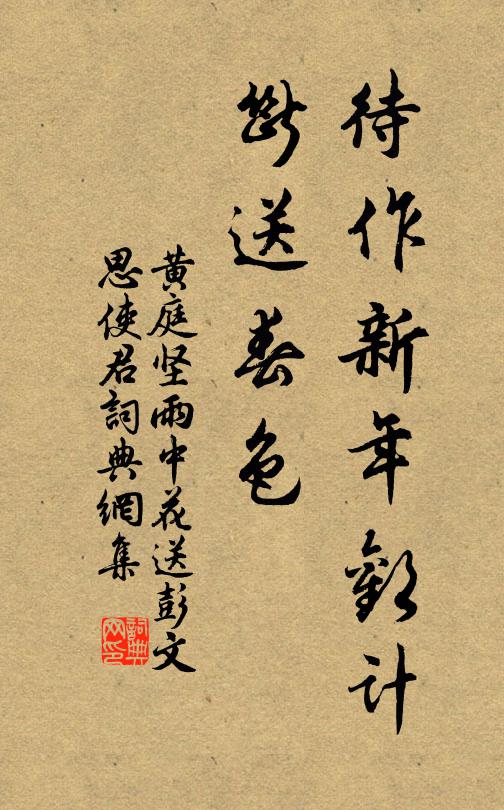 待作新年歡計
斷送春色
黄庭坚雨中花送彭文
思使君詞典網集
詞典網印